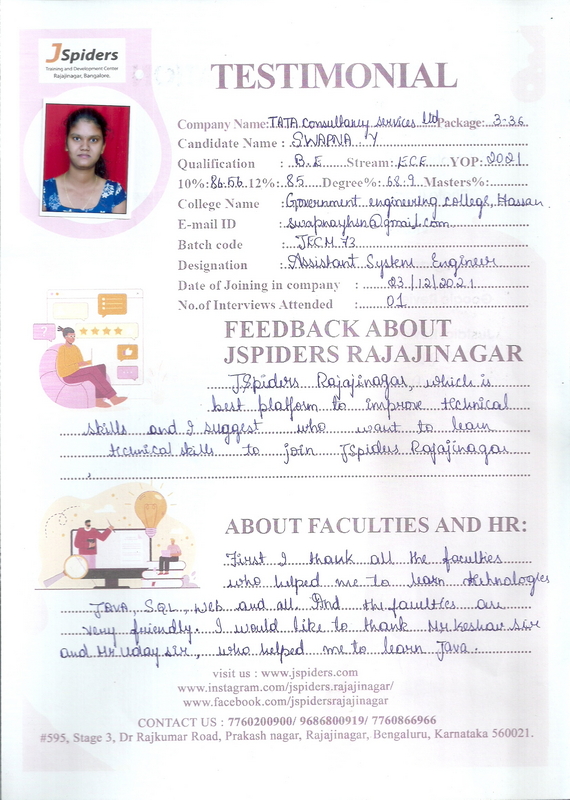 JSpiders
Training and Development Center
Rajajinagar, Bangalore.
TESTIMONIAL
Company Name: TATA Consultancy Services Ltd Package: 3.36
Candidate Name : SWAPNA . Y
Qualification : B.E Stream: ECE YOP: 2021
10%: 86.56 12%: 85 Degree%: 68.9 Masters%:
College Name : Government engineering college, Hassan.
E-mail ID : swapnayhsn@gmail.com
Batch code : JECM 73
Designation : Assistant System Engineer
Date of Joining in company : 23/12/2021
No.of Interviews Attended : 01
FEEDBACK ABOUT
JSPIDERS RAJAJINAGAR
JSpiders Rajajinagar, which is
best platform to improve technical
skills and I suggest who want to learn
technical skills to join JSpiders Rajajinagar
.
ABOUT FACULTIES AND HR:
First I thank all the faculties
who helped me to learn technologies
JAVA, SQL, Web and all. And the faculties are
very friendly. I would like to thank Mr. Keshav sir
and Mr. Uday sir, who helped me to learn Java.
visit us : www.jspiders.com
www.instagram.com/jspiders.rajajinagar/
www.facebook.com/jspidersrajajinagar
CONTACT US : 7760200900/ 9686800919/ 7760866966
#595, Stage 3, Dr Rajkumar Road, Prakash nagar, Rajajinagar, Bengaluru, Karnataka 560021.